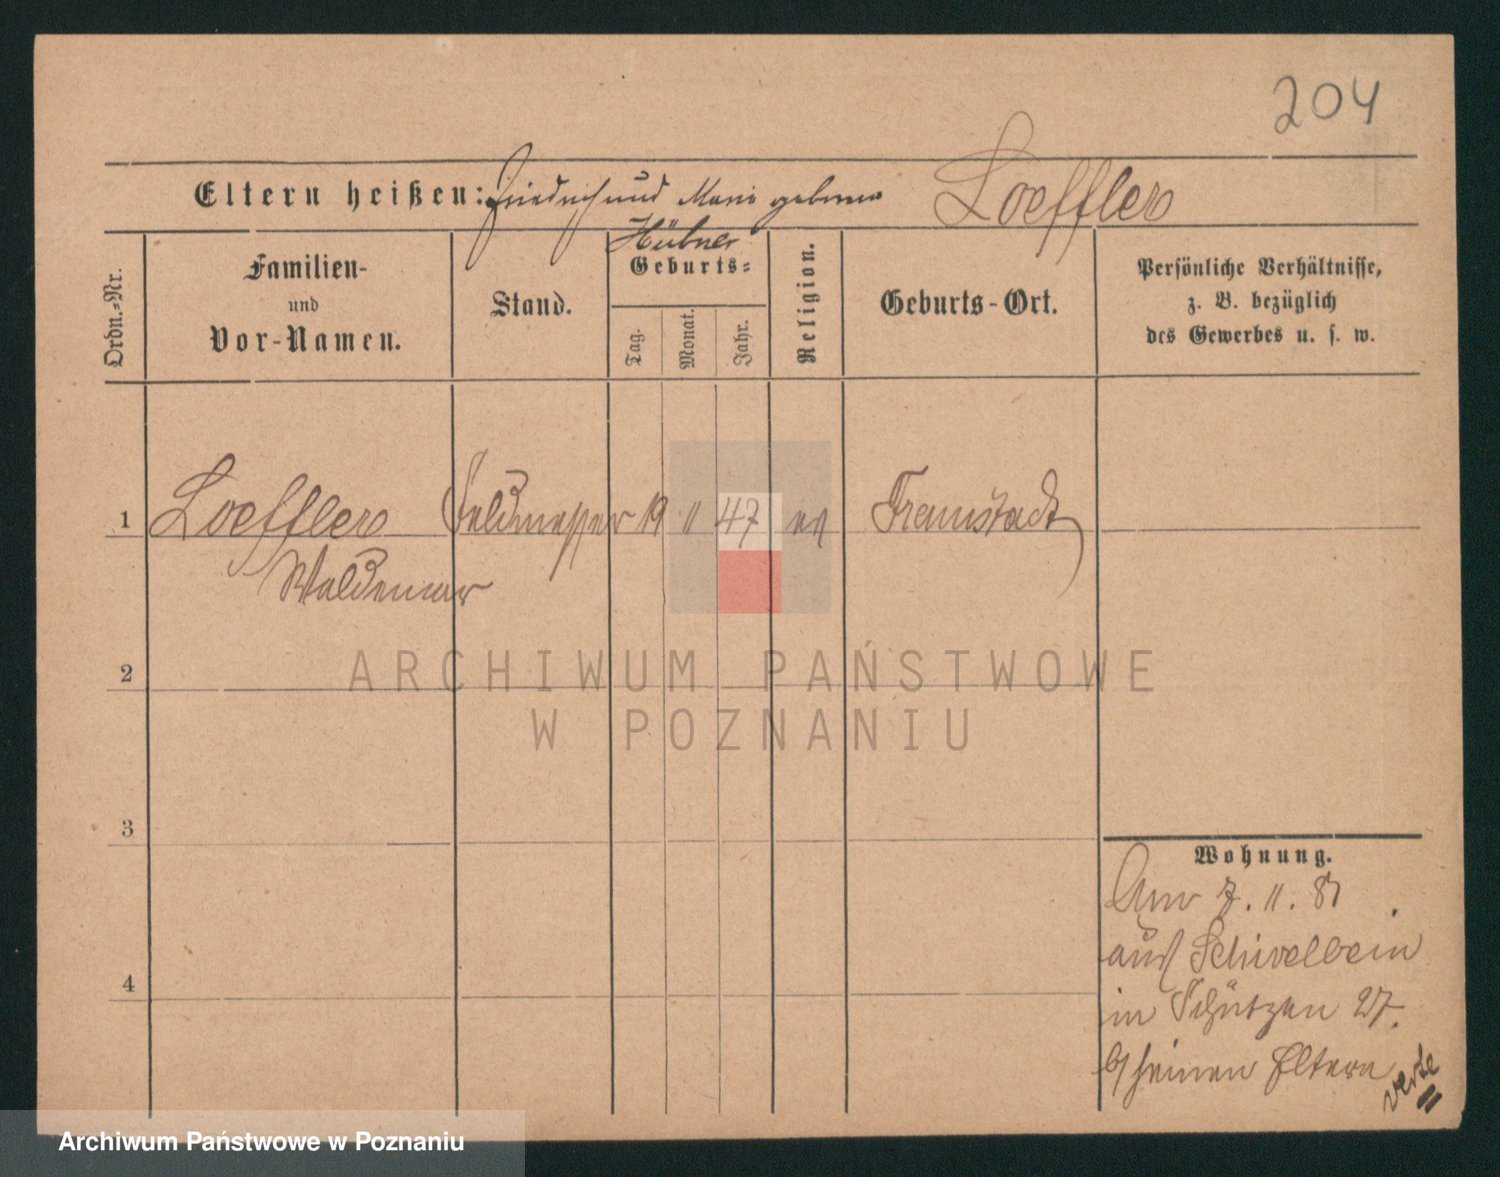 204
Eltern heißen: Friedrich und Marie geborene Loeffler
Hübner
Ordn.-Nr.
Familien-
und
Vor-Namen.
Stand.
Geburts-
Tag.
Monat.
Jahr.
Religion.
Geburts-Ort.
Persönliche Verhältnisse,
z. B. bezüglich
des Gewerbes u. s. w.
1 Loeffler Feldmesser 19 11 47 ev Fraustadt
Waldemar
2
3
4
Wohnung.
Am 7. 11. 81
aus Schivelbein
in Schützen 27.
b/ seinen Eltern
verte
ARCHIWUM PAŃSTWOWE
W POZNANIU
Archiwum Państwowe w Poznaniu